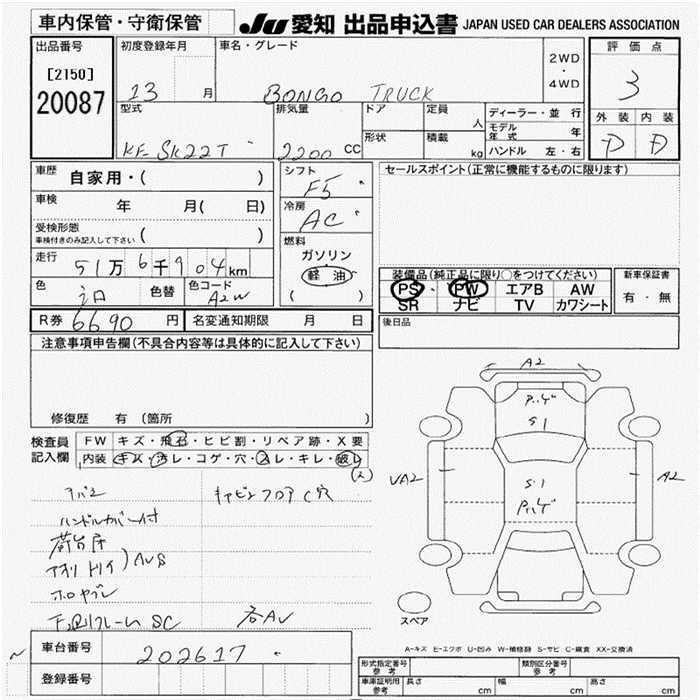 車内保管・守衛保管
JU 愛知 出品申込書 JAPAN USED CAR DEALERS ASSOCIATION
出品番号
[2150]
20087
初度登録年月
13 月
車名・グレード
BONGO TRUCK
2WD
・
4WD
評価点
3
外装 内装
D D
型式
KF-SK22T
排気量
2200 CC
ドア
定員
人
形状
積載
kg
ディーラー・並行
モデル年式 年
ハンドル 左・右
車歴 自家用・( )
車検 年 月( 日)
受検形態
車検付きのみ記入して下さい ( )
走行 51万6千904km
色
色替
色コード
A2W
シフト
F5
冷房
AC
燃料
ガソリン
軽油
( )
セールスポイント(正常に機能するものに限ります)
装備品(純正品に限り○をつけてください)
PS PW エアB AW
SR ナビ TV カワシート
新車保証書
有・無
後日品
R券 6690 円
名変通知期限 月 日
注意事項申告欄(不具合内容等は具体的に記入して下さい)
修復歴 有 (箇所 )
検査員
記入欄
FW キズ・飛石・ヒビ割・リペア跡・X要
内装 キズ・汚レ・コゲ・穴・スレ・キレ・破レ
(2)
キャビンフロアC穴
ハンドルカバー付
荷台床
アオリ トリイ ) AUS
ホロヤブレ
下廻リフレームSC
各AU
A2
S1
S1
UA2
A2
スペア
A-キズ E-エクボ U-凹み W-補修跡 S-サビ C-腐食 XX-交換済
車台番号
202617
登録番号
形式指定番号
参考
類別区分番号
参考
車庫証明用
参考
長さ cm
幅 cm
高さ cm